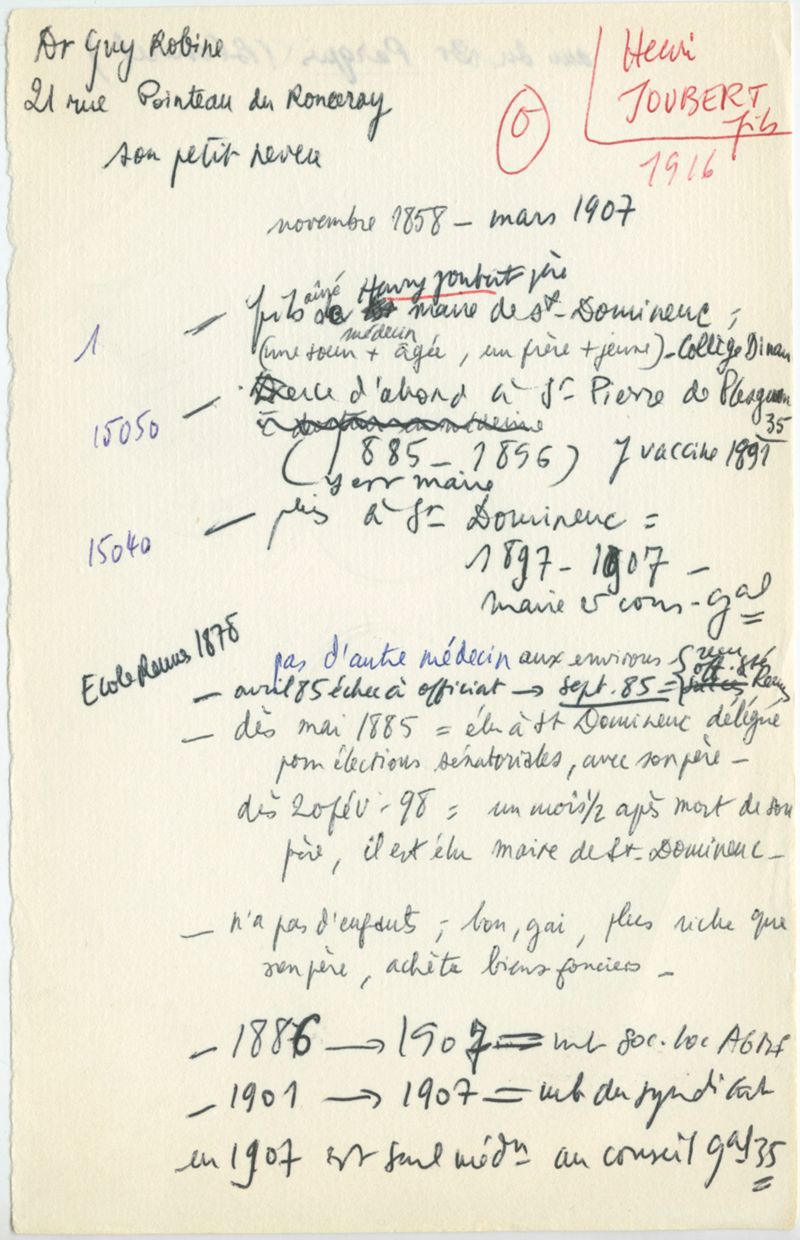 Dr Guy Robine
21 rue Pointeau du Ronceray
son petit neveu
Henri
JOUBERT
fils
1916
0
novembre 1858 - mars 1907
1
fils aîné de Henry Joubert père
maire de St-Domineuc ;
médecin
(une sœur + âgée, un frère + jeune) - Collège Dinan
Exerce d'abord à St-Pierre de Plesguen
35
15050
(1885 - 1896) y vaccine 1891
y est maire
15040
puis à St Domineuc =
1897 - 1907 -
maire et cons. gal
Ecole Rennes 1878
pas d'autre médecin aux environs
- avril 85 échec à officiat → sept. 85 = reçu off. sté Rennes
- dès mai 1885 = élu à St Domineuc délégué
pour élections sénatoriales, avec son père -
dès 20 fév. 98 = un mois 1/2 après mort de son
père, il est élu maire de St-Domineuc -
- n'a pas d'enfants ; bon, gai, plus riche que
son père, achète biens fonciers -
- 1886 → 1907 = mb soc. loc AGMF
- 1901 → 1907 = mb du syndicat
en 1907 est seul médn au conseil gal 35